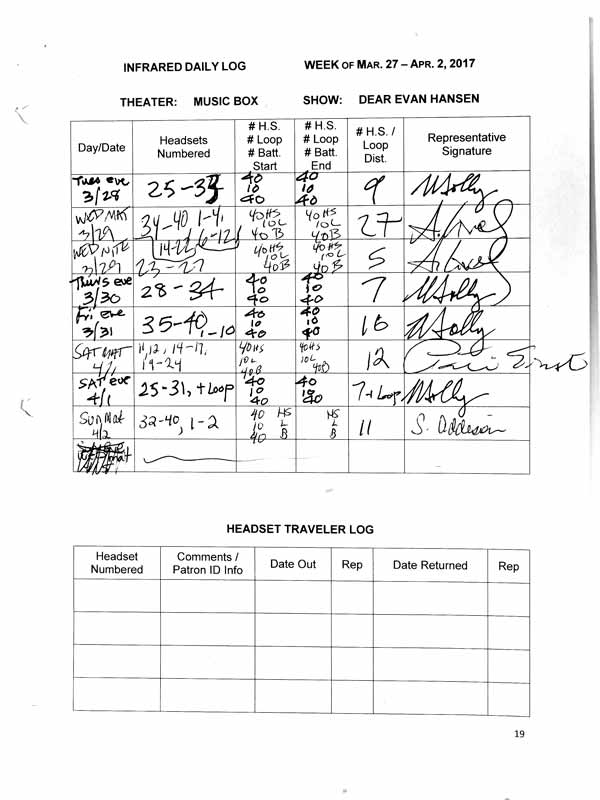 INFRARED DAILY LOG WEEK OF MAR. 27 – APR. 2, 2017
THEATER: MUSIC BOX SHOW: DEAR EVAN HANSEN
Day/Date Headsets Numbered # H.S. # Loop # Batt. Start # H.S. # Loop # Batt. End # H.S. / Loop Dist. Representative Signature
Tues eve 3/28 25-33 40 10 40 40 10 40 9 MJolly
WED MAT 3/29 34-40 1-4, 6-12, 40HS 10L 40B 40HS 10L 40B 27
14-22
WED NITE 3/29 23-27 40HS 10L 40B 40HS 10L 40B 5
Thurs eve 3/30 28-34 40 10 40 40 10 40 7 MJolly
Fri eve 3/31 35-40, 1-10 40 10 40 40 10 40 16 MJolly
SAT MAT 4/1 11, 12, 14-17, 19-24 40HS 10L 40B 40HS 10L 40B 12
SAT eve 4/1 25-31, + Loop 40 10 40 40 10 40 7 + Loop MJolly
Sun Mat 4/2 32-40, 1-2 40 10 40 HS L B HS L B 11 S. Addeson
HEADSET TRAVELER LOG
Headset Numbered Comments / Patron ID Info Date Out Rep Date Returned Rep
19